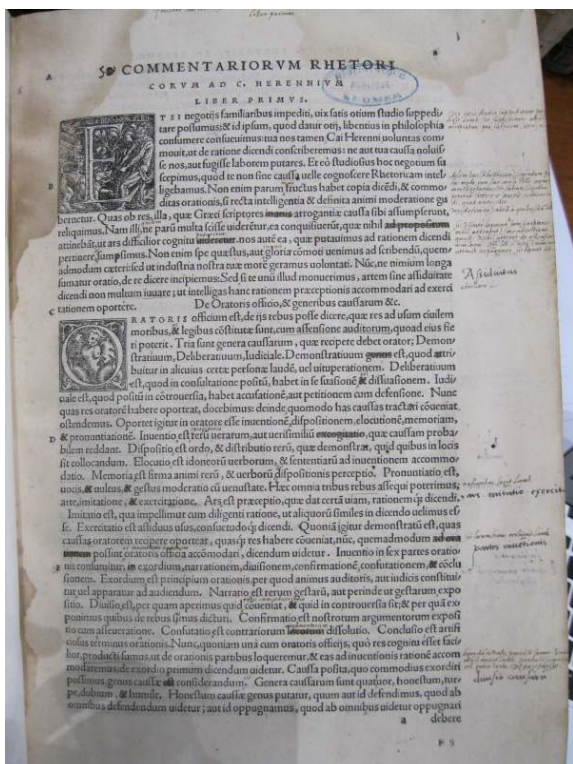 COMMENTARIORVM RHETORI
CORVM AD C. HERENNIVM
LIBER PRIMVS.
A
ETSI negotijs familiaribus impediti, uix satis otium studio suppedi
tare possumus: & id ipsum, quod datur otij, libentius in philosophia
consumere consueuimus: tua nos tamen Cai Herenni uoluntas com
mouit, ut de ratione dicendi conscriberemus: ne aut tua caussa noluis
se nos, aut fugisse laborem putares. Et eò studiosius hoc negotium su
scepimus, quòd te non sine caussa uelle cognoscere Rhetoricam intel
B
ligebamus. Non enim parum fructus habet copia dicēdi, & commo
ditas orationis, si recta intelligentia & definita animi moderatione gu
bernetur. Quas ob res, illa, quæ Græci scriptores inanis arrogantiæ caussa sibi assumpserunt,
reliquimus. Nam illi, ne parū multa scisse uiderētur, ea conquisiuerūt, quæ nihil ad propositum
attinebāt, ut ars difficilior cognitu uideretur. nos autē ea, quæ putauimus ad rationem dicendi
pertinere, sumpsimus. Non enim spe quæstus, aut gloria cōmoti uenimus ad scribendū, quem
admodum cæteri: sed ut industria nostra tuæ morē geramus uoluntati. Nūc, ne nimium longa
sumatur oratio, de re dicere incipiemus: Sed si te unū illud monuerimus, artem sine assiduitate
dicendi non multum iuuare; ut intelligas hanc rationem præceptionis accommodari ad exerci
tationem oportere. De Oratoris officio, & generibus caussarum &c.
C
ORATORIS officium est, de ijs rebus posse dicere, quæ res ad usum ciuilem
moribus, & legibus cōstitutæ sunt, cum assensione auditorum, quoad eius fie
ri poterit. Tria sunt genera caussarum, quæ recipere debet orator; Demon/
stratiuum, Deliberatiuum, Iudiciale. Demonstratiuum genus est, quod attri/
buitur in alicuius certæ personæ laudē, uel uituperationem. Deliberatiuum
est, quod in consultatione positū, habet in se suasionē & dissuasionem. Iudi/
ciale est, quod positū in cōtrouersia, habet accusationē, aut petitionem cum defensione. Nunc
quas res oratorē habere oporteat, docebimus: deinde quomodo has caussas tractari cōueniat,
ostendemus. Oportet igitur in oratore esse inuentionē, dispositionem, elocutionē, memoriam,
D
& pronuntiationē. Inuentio est rerū uerarum, aut uerisimiliū excogitatio, quæ caussam proba/
bilem reddant. Dispositio est ordo, & distributio rerū, quæ demonstrat, quid quibus in locis
sit collocandum. Elocutio est idoneorū uerborum, & sententiarū ad inuentionem accommo/
datio. Memoria est firma animi rerū, & uerborū dispositionis perceptio. Pronuntiatio est,
uocis, & uultus, & gestus moderatio cū uenustate. Hæc omnia tribus rebus assequi poterimus,
arte, imitatione, & exercitatione. Ars est præceptio, quæ dat certā uiam, rationemq́ dicendi.
ars imitatio exercit
Imitatio est, qua impellimur cum diligenti ratione, ut aliquorū similes in dicendo uelimus es/
se. Exercitatio est assiduus usus, consuetudoq́ dicendi. Quoniā igitur demonstratū est, quas
caussas oratorem recipere oporteat, quasq́ res habere cōueniat, nūc, quemadmodum
possint oratoris officia accōmodari, dicendum uidetur. Inuentio in sex partes oratio/
partes inuentionis
E
nis consumitur, in exordium, narrationem, diuisionem, confirmationē, confutationem, & cōclu
sionem. Exordium est principium orationis, per quod animus auditoris, aut iudicis constitui/
tur uel apparatur ad audiendum. Narratio est rerum gestarū, aut perinde ut gestarum, expo
sitio. Diuisio est, per quam aperimus quid cōueniat, & quid in controuersia sit: & per quā ex/
ponimus quibus de rebus simus dicturi. Confirmatio est nostrorum argumentorum exposi
tio cum asseueratione. Confutatio est contrariorum locorum dissolutio. Conclusio est artifi
ciosus terminus orationis. Nunc, quoniam unà cum oratoris officijs, quò res cognitu esset faci/
lior, producti sumus, ut de orationis partibus loqueremur, & eas ad inuentionis rationē accom
modaremus, de exordio primùm dicendum uidetur. Caussa posita, quo commodius exordiri
possimus, genus caussæ est considerandum. Genera caussarum sunt quatuor, honestum, tur/
pe, dubium, & humile. Honestum caussæ genus putatur, quum aut id defendimus, quod ab
omnibus defendendum uidetur; aut id oppugnamus, quod ab omnibus uidetur oppugnari
a debere